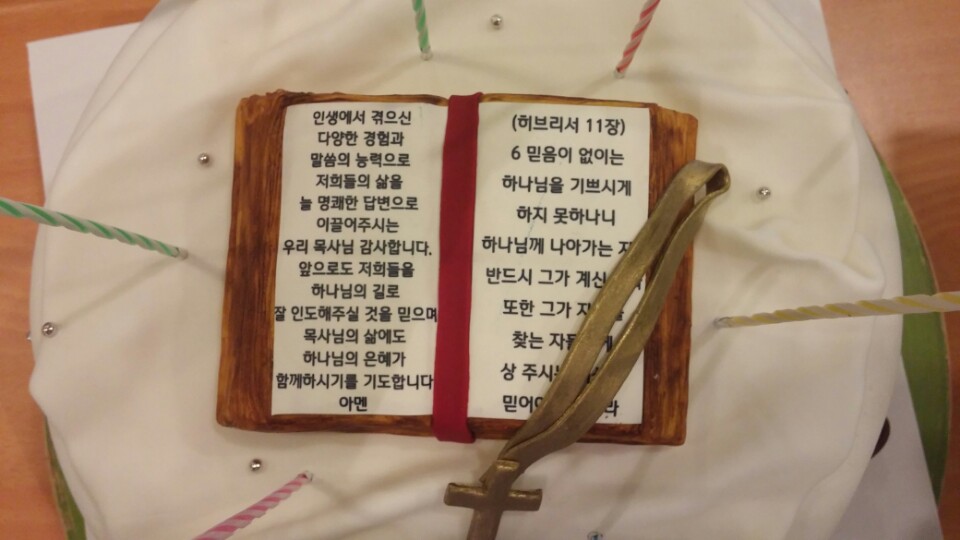 인생에서 겪으신
다양한 경험과
말씀의 능력으로
저희들의 삶을
늘 명쾌한 답변으로
이끌어주시는
우리 목사님 감사합니다.
앞으로도 저희들을
하나님의 길로
잘 인도해주실 것을 믿으며
목사님의 삶에도
하나님의 은혜가
함께하시기를 기도합니다
아멘
(히브리서 11장)
6 믿음이 없이는
하나님을 기쁘시게
하지 못하나니
하나님께 나아가는
반드시 그가
또한 그가
찾는
상